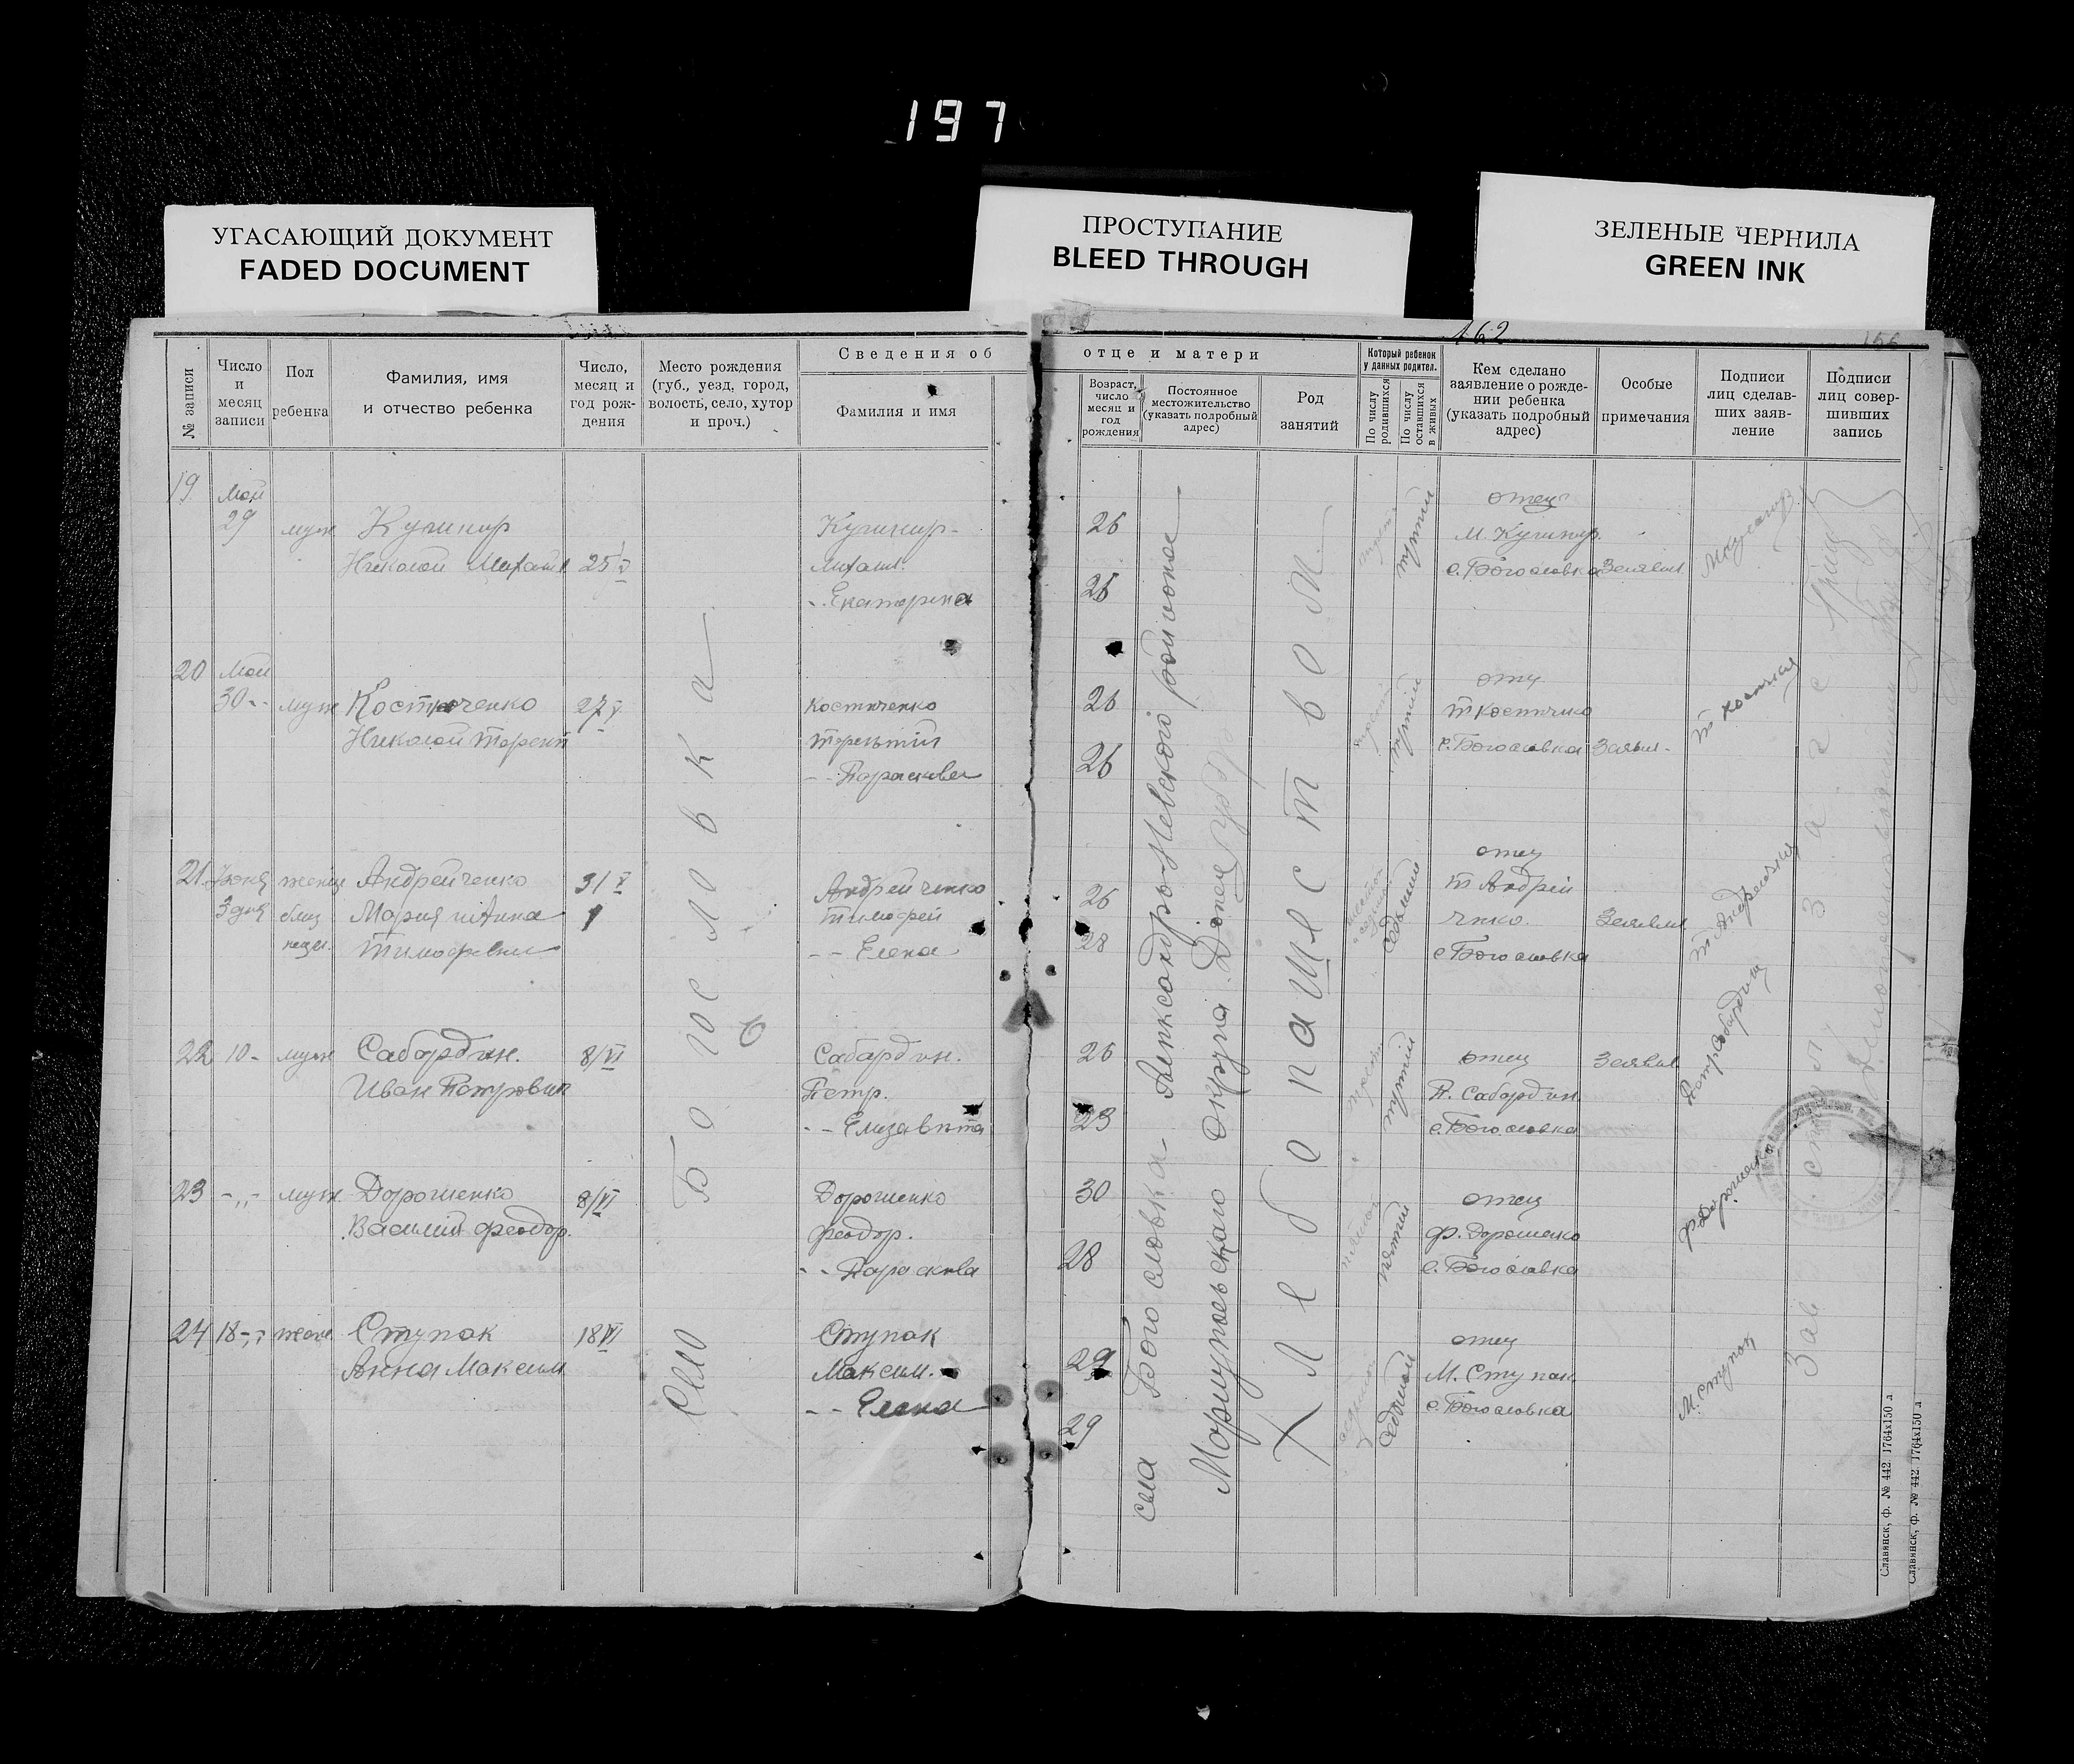 197
УГАСАЮЩИЙ ДОКУМЕНТ
FADED DOCUMENT
ПРОСТУПАНИЕ
BLEED THROUGH
ЗЕЛЕНЫЕ ЧЕРНИЛА
GREEN INK
162
156
№ записи
Число
и
месяц
записи
Пол
ребенка
Фамилия, имя
и отчество ребенка
Число,
месяц и
год рож-
дения
Место рождения
(губ., уезд, город,
волость, село, хутор
и проч.)
Сведения об отце и матери
Фамилия и имя
Возраст,
число
месяц и
год
рождения
Постоянное
местожительство
(указать подробный
адрес)
Род
занятий
Который ребенок
у данных родител.
По числу
родившихся
По числу
оставшихся
в живых
Кем сделано
заявление о рожде-
нии ребенка
(указать подробный
адрес)
Особые
примечания
Подписи
лиц сделав-
ших заяв-
ление
Подписи
лиц совер-
шивших
запись
19
Май
29
муж
Кушнир
Николай Михаил
25 V
Кушнир
Михаил
-- Екатерина
26
26
третий
отец
М. Кушнир
с. Богословка
Заявил
20
Май
30 --
муж
Костюченко
Николай Терент
27 V
Костюченко
Терентий
-- Парасковья
26
26
третий
отец
Т Костюченко
с. Богословка
Заявил
21
Июня
3 дня
женщ
близ
нецы
Андрейченко
Мария и Анна
Тимофеевны
31 V
Андрейченко
Тимофей
-- Елена
26
28
седьмой
отец
Т Андрей
ченко
с Богословка
Заявил
22
10 -
муж
Сабардин.
Иван Петрович
8/VI
Сабардин.
Петр.
-- Елизавета
26
23
третий
отец
П. Сабардин
с. Богословка
Заявил
23
-„-
муж
Дорошенко
Василий Феодор.
8/VI
Дорошенко
Феодор.
-- Параскева
30
28
пятый
отец
Ф. Дорошенко
с. Богословка
Ф Дорошенко
24
18 -„
женс
Ступак
Анна Максим
18 VI
Ступак
Максим.
-- Елена
29
29
седьмой
отец
М. Ступак
с. Богословка
М. Ступак
Село Богословка
села Богословка Александро-Невского района
Мариупольского округа Донец губ
Хлебопашество
Славянск, ф. № 442. 1764х150 л
Славянск, ф. № 442. 1764х150 л